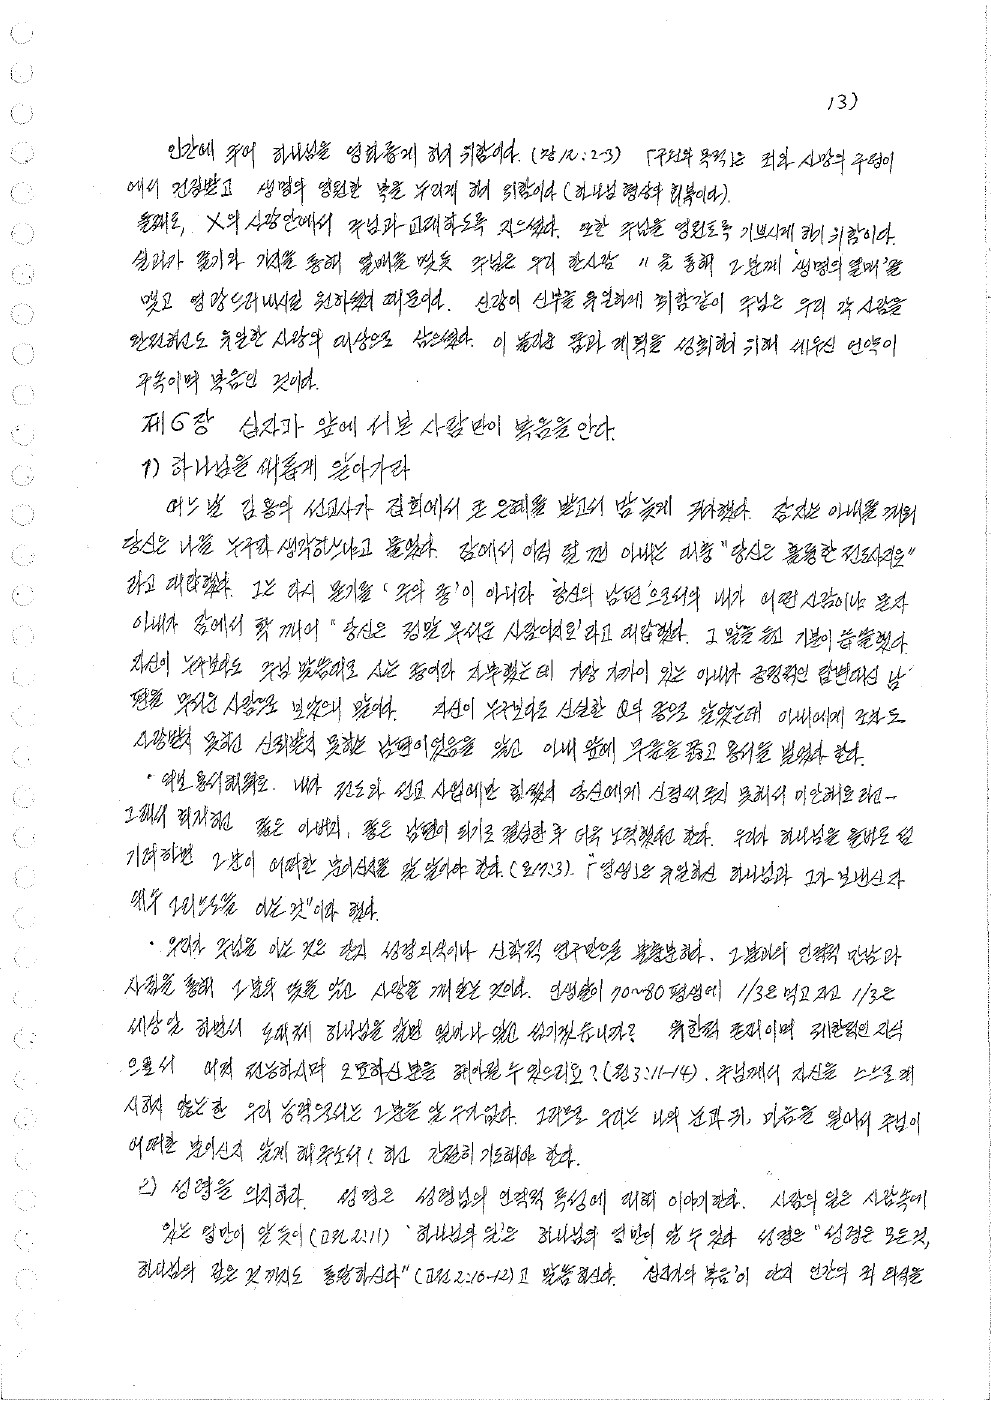 13)
인간에 주어 하나님을 영화롭게 하기 위함이다. (창12:2-3) 「구원의 목적」은 죄와 사망의 구렁이
에서 건짐받고 생명의 영원한 복을 누리게 하기 위함이다 (하나님 형상의 회복이다).
둘째로, X의 사랑안에서 주님과 교제하도록 지으셨다. 또한 주님을 영원토록 기쁘시게 하기 위함이다.
뿌리가 줄기와 가지를 통해 열매를 맺듯 주님은 우리 한사람 〃을 통해 그분께 '생명의 열매'를
맺고 영광드러내시길 원하셨기 때문이다. 신랑이 신부를 유일하게 취함같이 주님은 우리 각 사람을
완전하신도 유일한 사랑의 대상으로 삼으셨다. 이 놀라운 뜻과 계획을 성취하기 위해 세우신 언약이
구속이며 복음인 것이다.
제6장 십자가 앞에 서 본 사람만이 복음을 안다.
1) 하나님을 새롭게 알아가라
어느날 김용의 선교사가 집회에서 큰 은혜를 받고서 밤 늦게 귀가했다. 잠자는 아내를 깨워
당신은 나를 누구라 생각하느냐고 물었다. 잠에서 아직 덜 깬 아내는 대충 "당신은 훌륭한 전도사지요"
라고 대답했다. 그는 다시 묻기를 '주의 종'이 아니라 '당신의 남편'으로서의 내가 어떤 사람이냐 묻자
아내가 잠에서 확 깨어 "당신은 정말 무서운 사람이지요'라고 대답했다. 그 말을 듣고 기분이 씁쓸했다.
자신이 누구보다도 주님 말씀대로 사는 종이라 자부했는데 가장 가까이 있는 아내가 긍정적인 답변대신 남
편을 무서운 사람으로 보았으니 말이다. 자신이 누구보다도 신실한 Q의 종으로 알았는데 아내에게 조차도
사랑받지 못하고 신뢰받지 못하는 남편이었음을 알고 아내 앞에 무릎을 꿇고 용서를 빌었다 한다.
· 여보 용서해줘요. 내가 전도와 선교 사업에만 힘썼지 당신에게 신경써주지 못해서 미안해요 라고-
그래서 회개하고 좋은 아버지, 좋은 남편이 되기로 결심한후 더욱 노력했다고 한다. 우리가 하나님을 올바로 섬
기려하면 그 분이 어떠한 분이신지를 잘 알아야 한다. (요17:3). "「영생」은 유일하신 하나님과 그가 보내신 자
예수 그리스도를 아는 것"이라 했다.
· 우리가 주님을 아는 것은 단지 성경지식이나 신학적 연구만으로 불충분하다. 그 분과의 인격적 만남과
사귐을 통해 그 분의 뜻을 알고 사랑을 깨닫는 것이다. 인생살이 70~80 평생에 1/3은 먹고 자고 1/3은
세상일 하면서 도대체 하나님을 알면 얼마나 알고 섬기겠습니까? 유한적 존재이며 제한적인 지식
으로서 어찌 전능하시며 오묘하신 분을 헤아릴 수 있으리요? (전3:11-14). 주님께서 자신을 스스로 계
시하지 않는한 우리 능력으로서는 그 분을 알 수가 없다. 그러므로 우리는 나의 눈과 귀, 마음을 열어서 주님이
어떠한 분이신지 알게 해 주소서! 하고 간절히 기도해야 한다.
2) 성령을 의지하라. 성경은 성령님의 인격적 특성에 대해 이야기한다. 사람의 일은 사람속에
있는 영만이 알듯이 (고전2:11) '하나님의 일'은 하나님의 영만이 알 수 있다 성경은 "성령은 모든것,
하나님의 깊은 것 까지도 통달하신다" (고전2:10-12)고 말씀하신다. '십자가의 복음'이 단지 인간의 죄 의식을